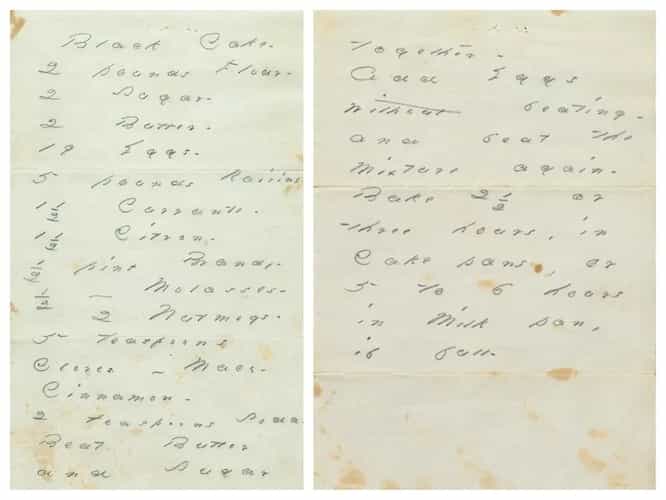 Black Cake -
2 pounds Flour -
2 Sugar -
2 Butter -
19 Eggs -
5 pounds Raisins
1 1/2 Currants -
1 1/2 Citron -
1/2 pint Brandy -
1/2 — Molasses -
2 Nutmegs -
5 teaspoons
Cloves - Mace -
Cinnamon -
2 teaspoons Soda
Beat Butter
and Sugar
together -
Add Eggs
without beating -
and beat the
mixture again -
Bake 2 1/2 or
three hours, in
Cake pans, or
5 to 6 hours
in Milk pan,
if full -